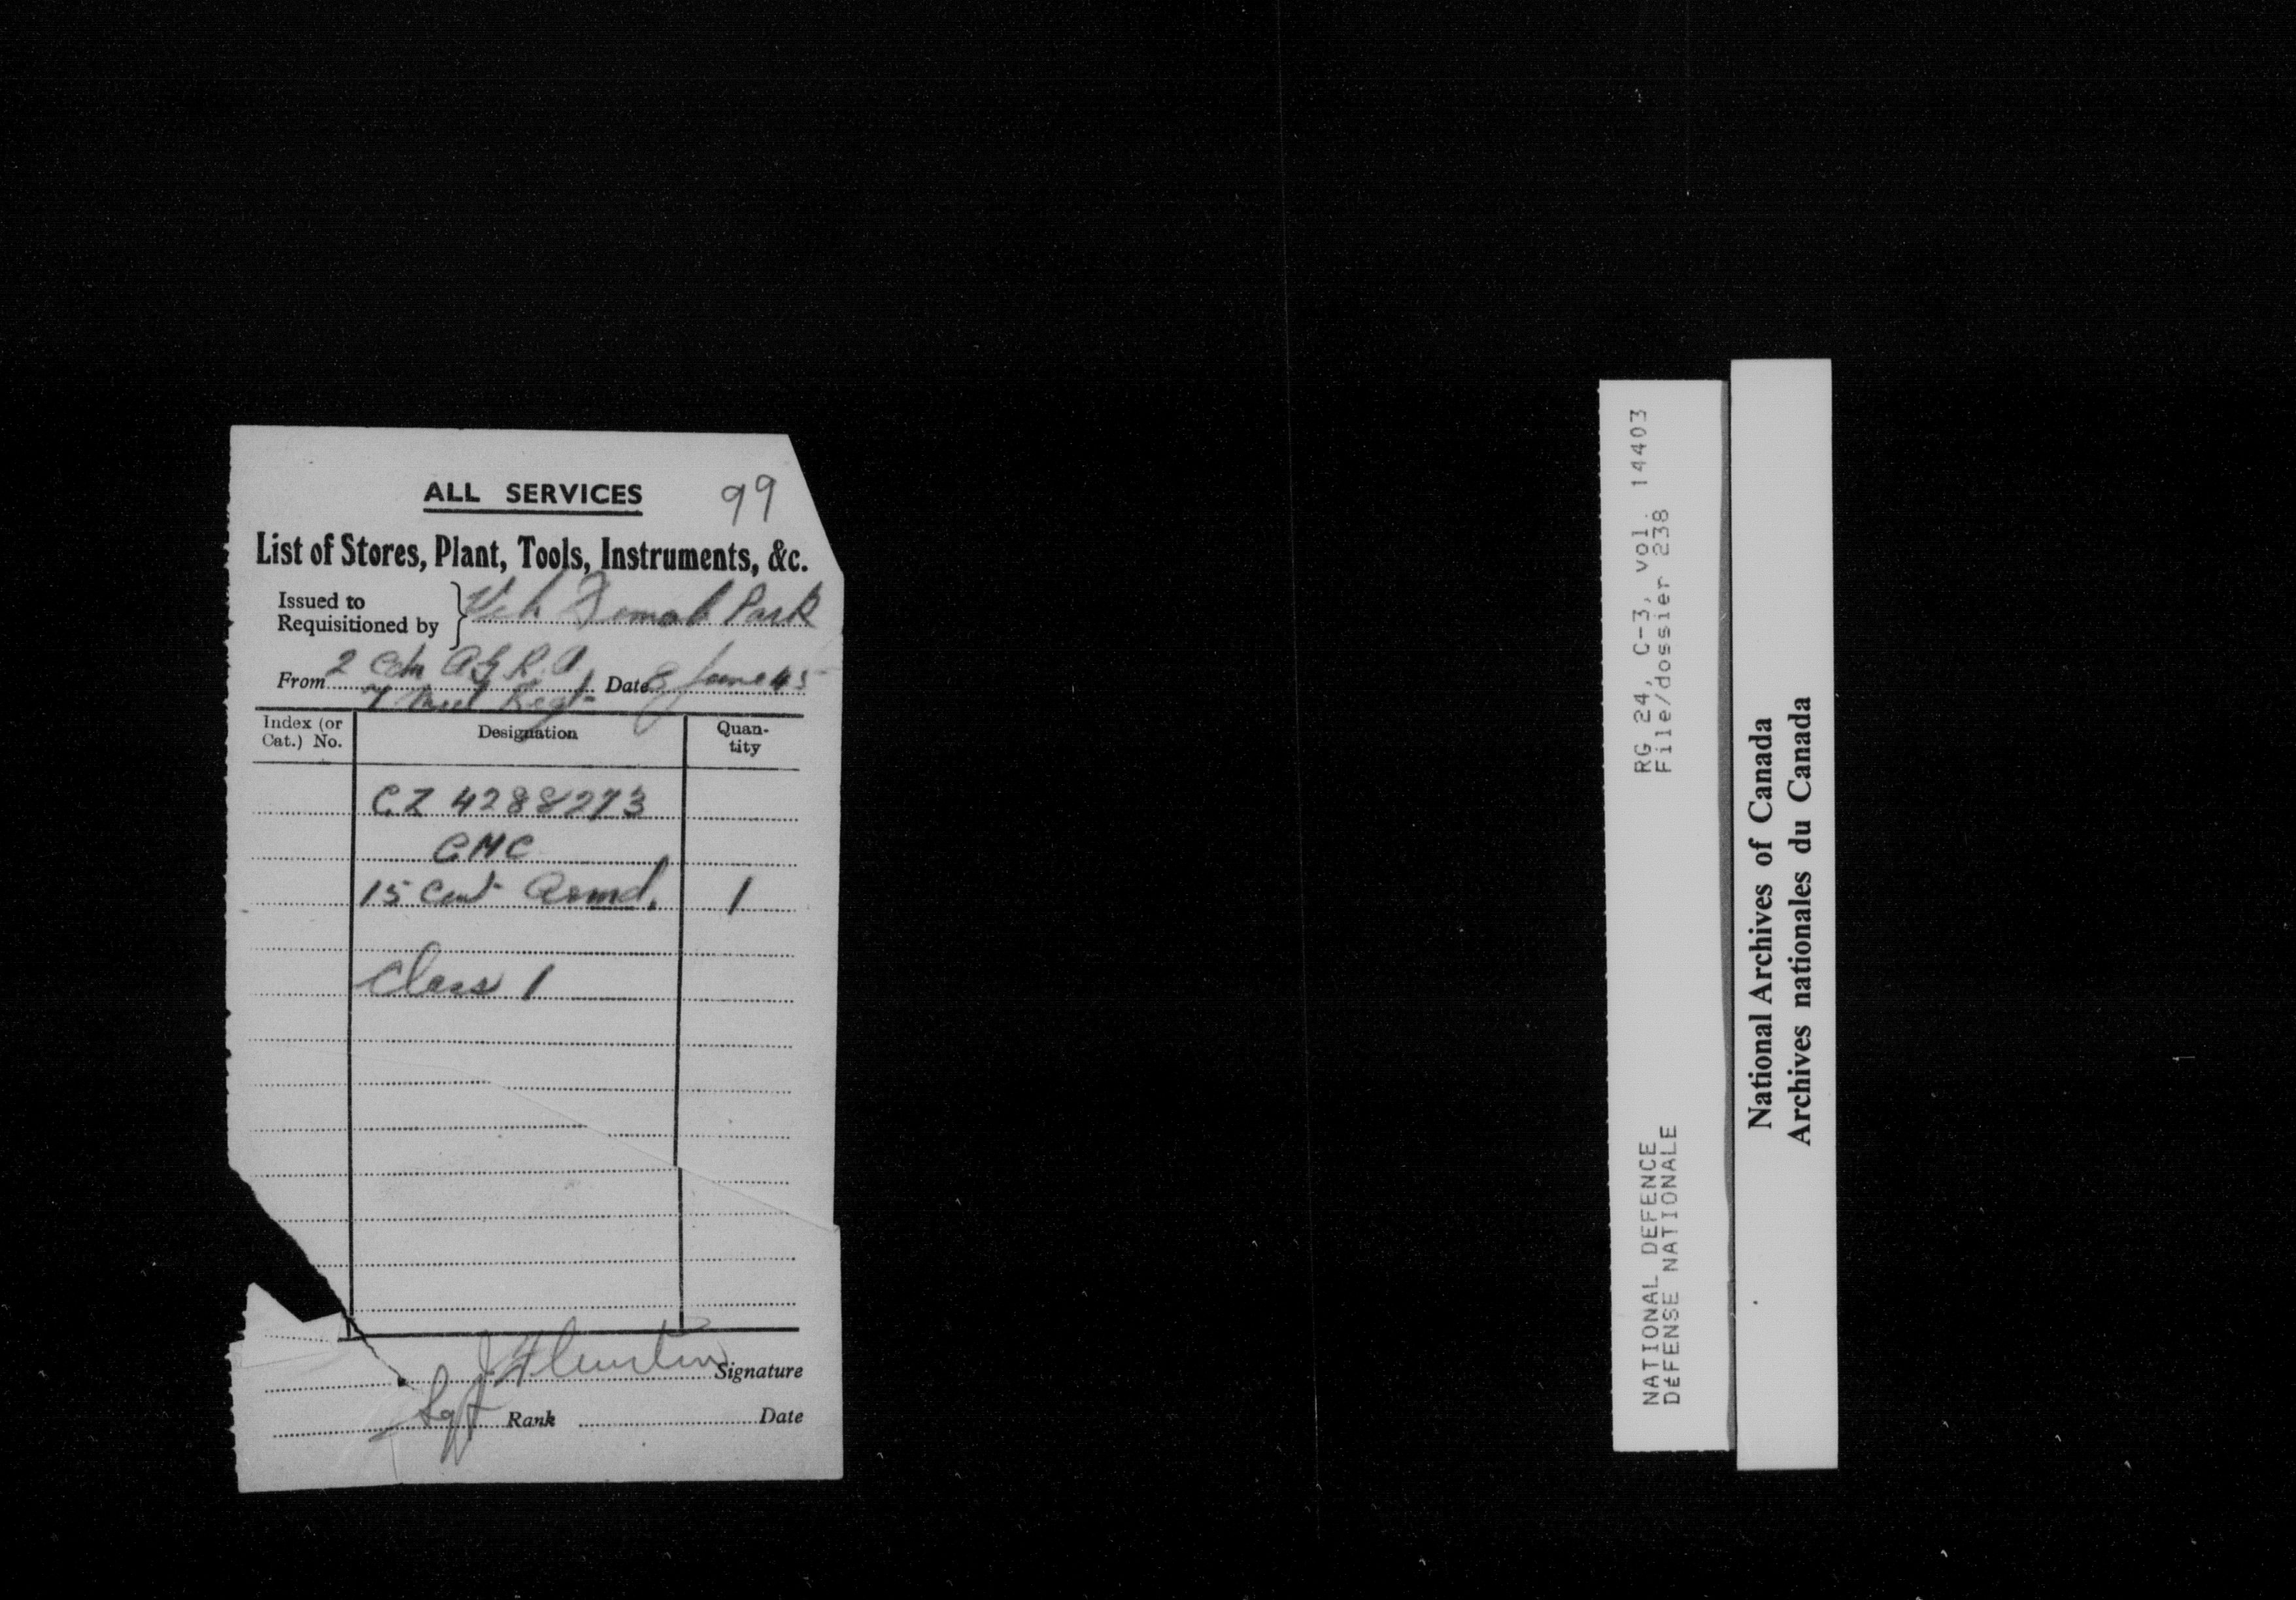 ALL SERVICES 99
List of Stores, Plant, Tools, Instruments, &c.
Issued to
Requisitioned by } Veh Demob Park
From 2 Cdn A.G.R.A. Date 8 June 45
7 Med Regt
Index (or Cat.) No. Designation Quantity
CZ 4288273
CMC
15 Cwt Armd. 1
Class 1
Signature
Sgt Rank Date
RG 24, C-3, vol. 14403
File/dossier 238
NATIONAL DEFENCE
DÉFENSE NATIONALE
National Archives of Canada
Archives nationales du Canada